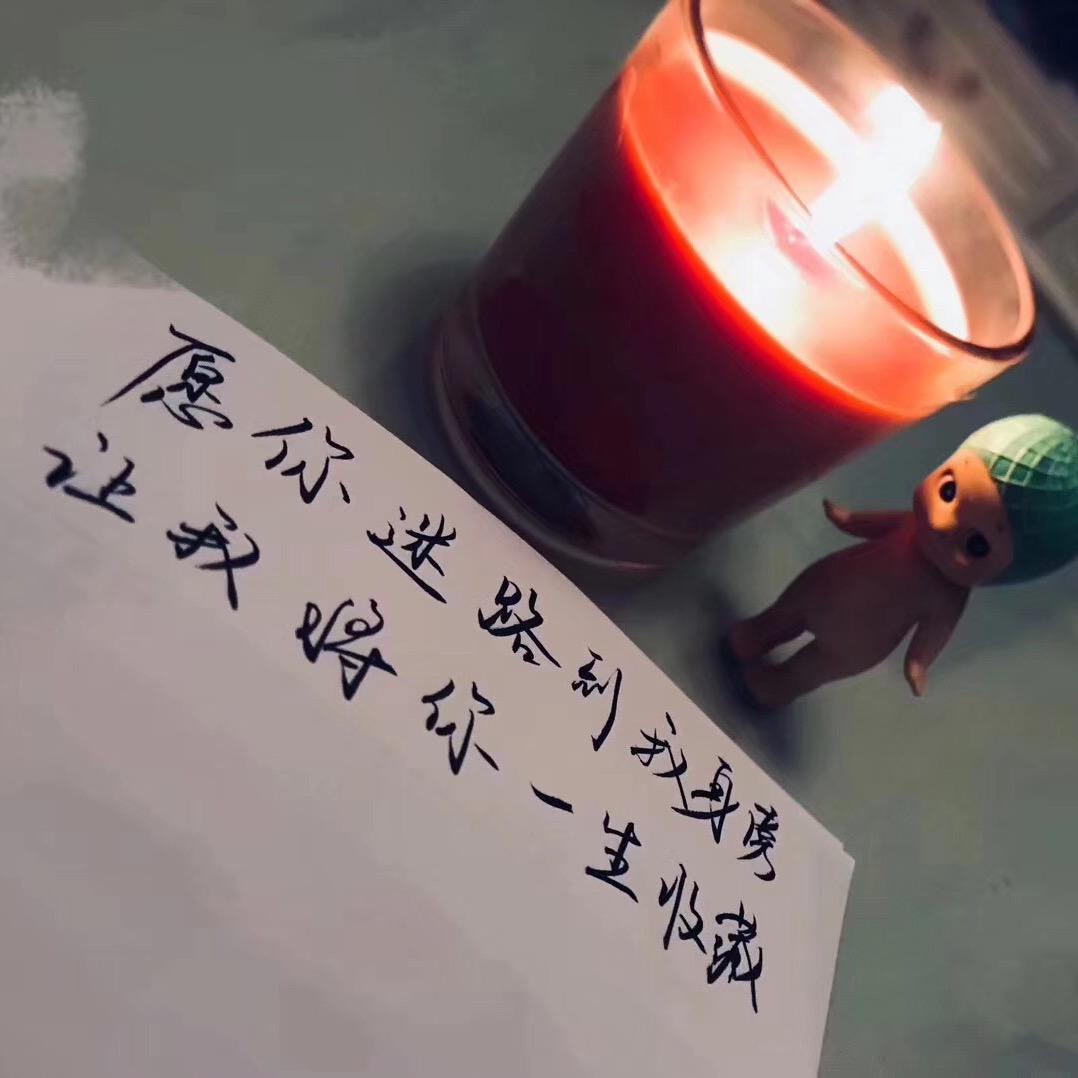 愿你迷路到我身旁
让我将你一生收藏